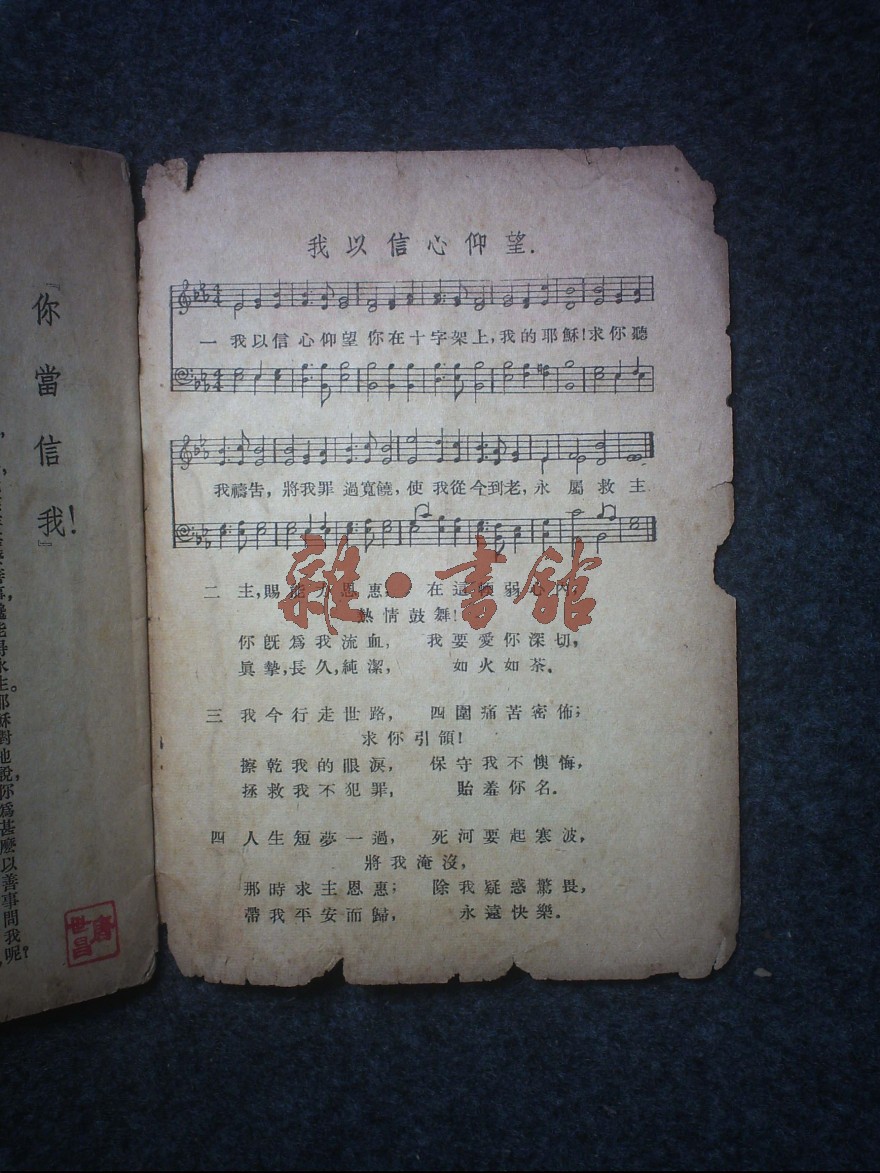 我以信心仰望.
一 我以信心仰望你在十字架上,我的耶穌!求你聽
我禱告,將我罪過寬饒,使我從今到老,永屬救主
二 主,賜能力恩惠, 在這頓弱心內,
熱情鼓舞!
你旣爲我流血, 我要愛你深切,
眞摯,長久,純潔, 如火如荼.
三 我今行走世路, 四圍痛苦密佈;
求你引領!
擦乾我的眼淚, 保守我不懊悔,
拯救我不犯罪, 貽羞你名.
四 人生短夢一過, 死河要起寒波,
將我淹沒,
那時求主恩惠; 除我疑惑驚畏,
帶我平安而歸, 永遠快樂.
『你當信我!』
耶穌對他說,你爲甚麼以善事問我呢?
雜·書館